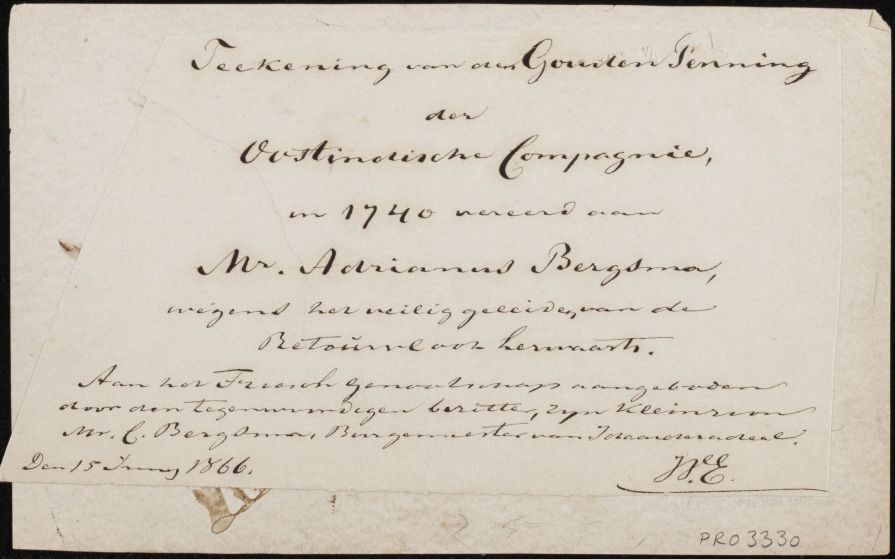 Teekening van den Gouden Penning
der
Oostindische Compagnie,
in 1740 vereerd aan
Mr. Adrianus Bergsma,
wegens het veilig geleiden van de
Retourvloot herwaarts.
Aan het Friesch Genootschap aangeboden
door den tegenwoordigen bezitter, zyn kleinzoon
Mr. C. Bergsma, Burgemeester van Idaarderadeel.
Den 15 Juny 1866.
W.E.
PRO3330